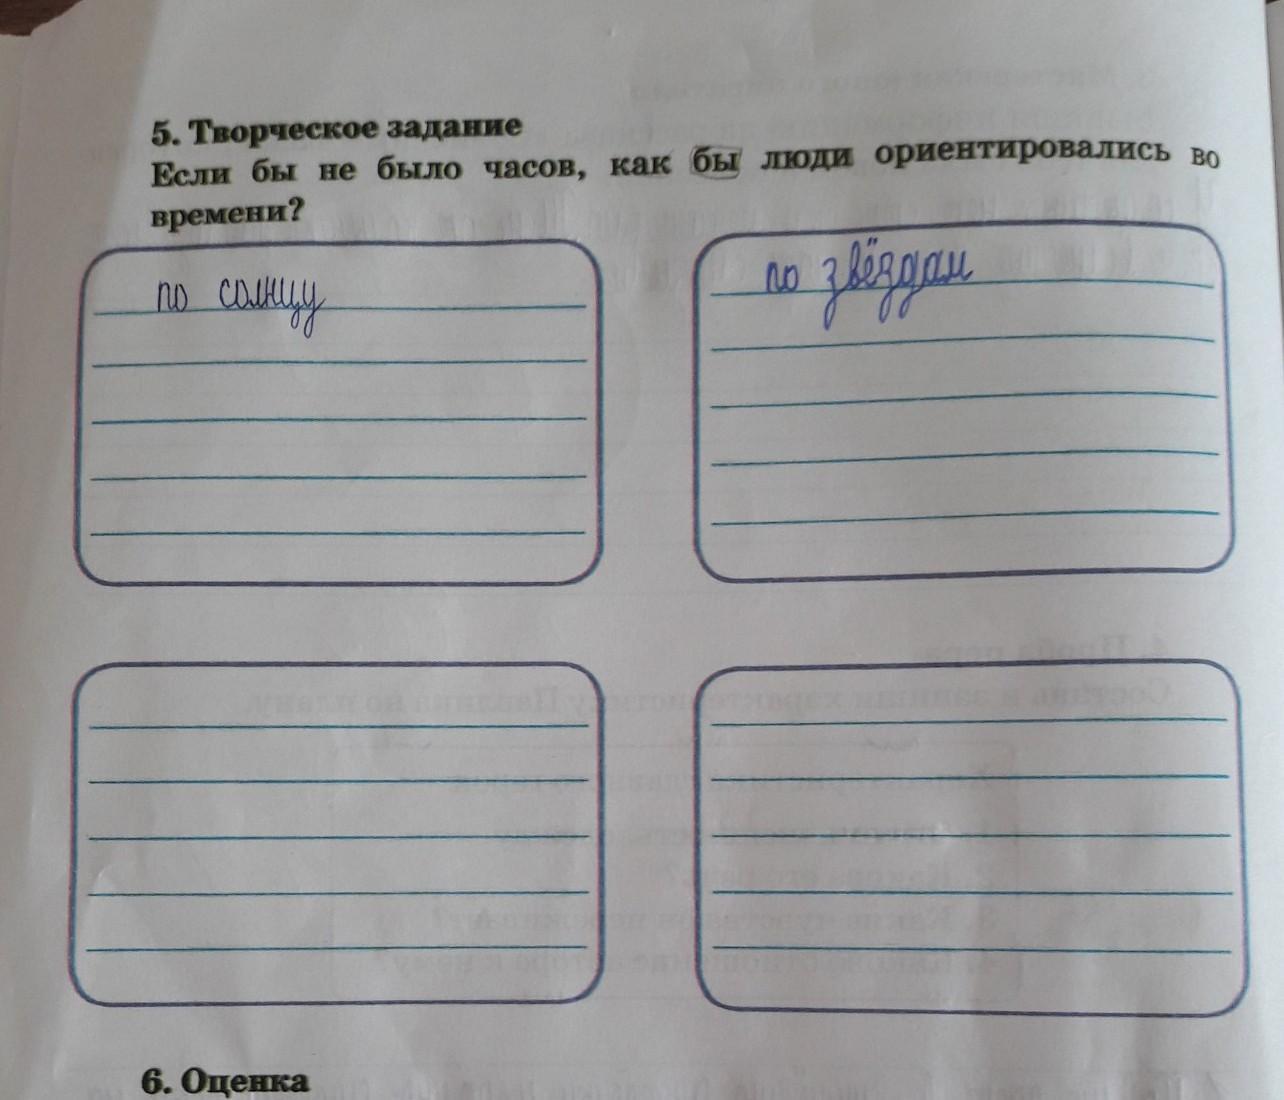 5. Творческое задание
Если бы не было часов, как бы люди ориентировались во
времени?
по солнцу
по звёздам
6. Оценка